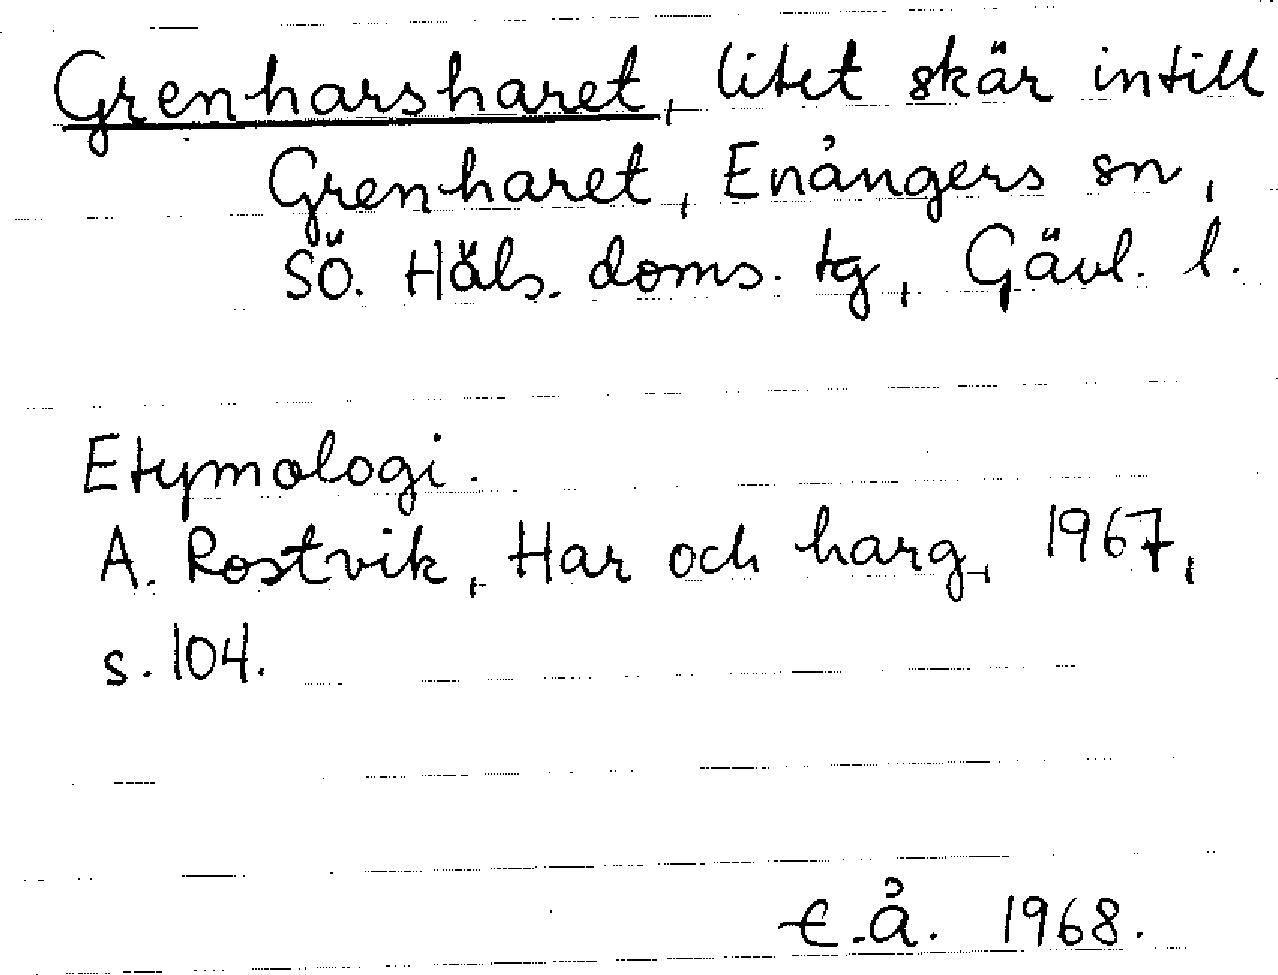 Grenharsharet, litet skär intill
Grenharet, Enångers sn,
SÖ. Häls. doms. tg, Gävl. l.
Etymologi.
A. Rostvik, Har och harg, 1967,
s. 104.
E.Å. 1968.